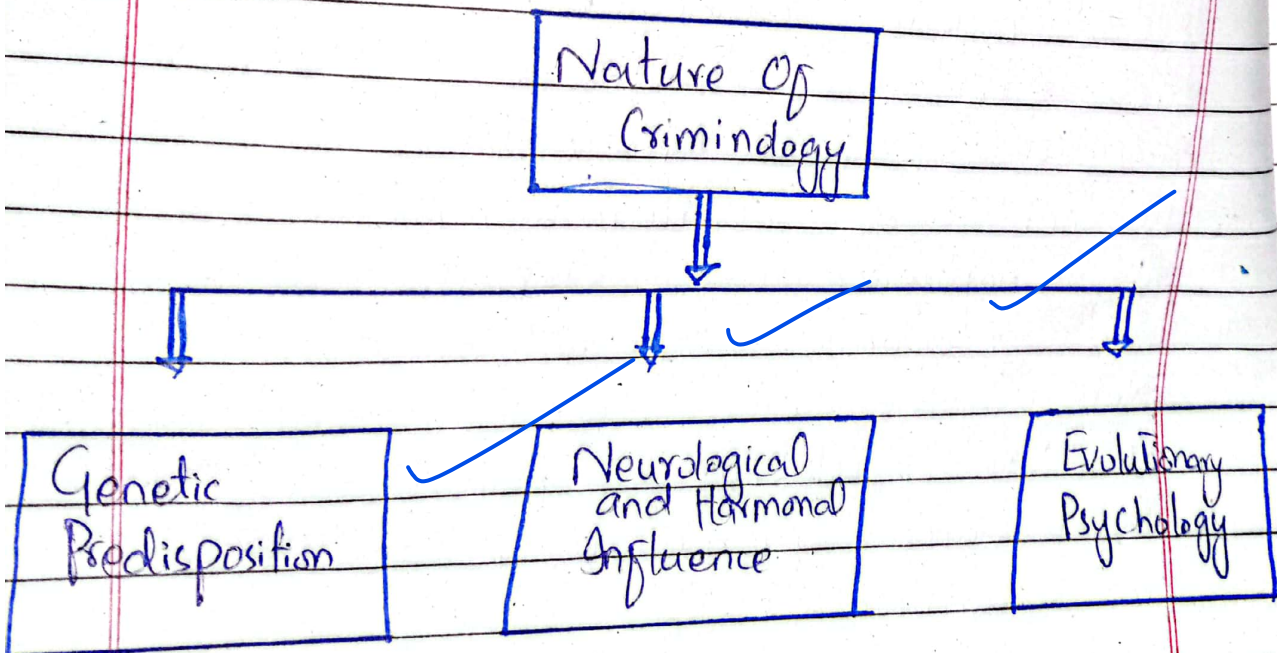 Nature Of
Crimindogy
Genetic
Predisposition
Neurological
and Harmonal
Influence
Evolutionary
Psychology